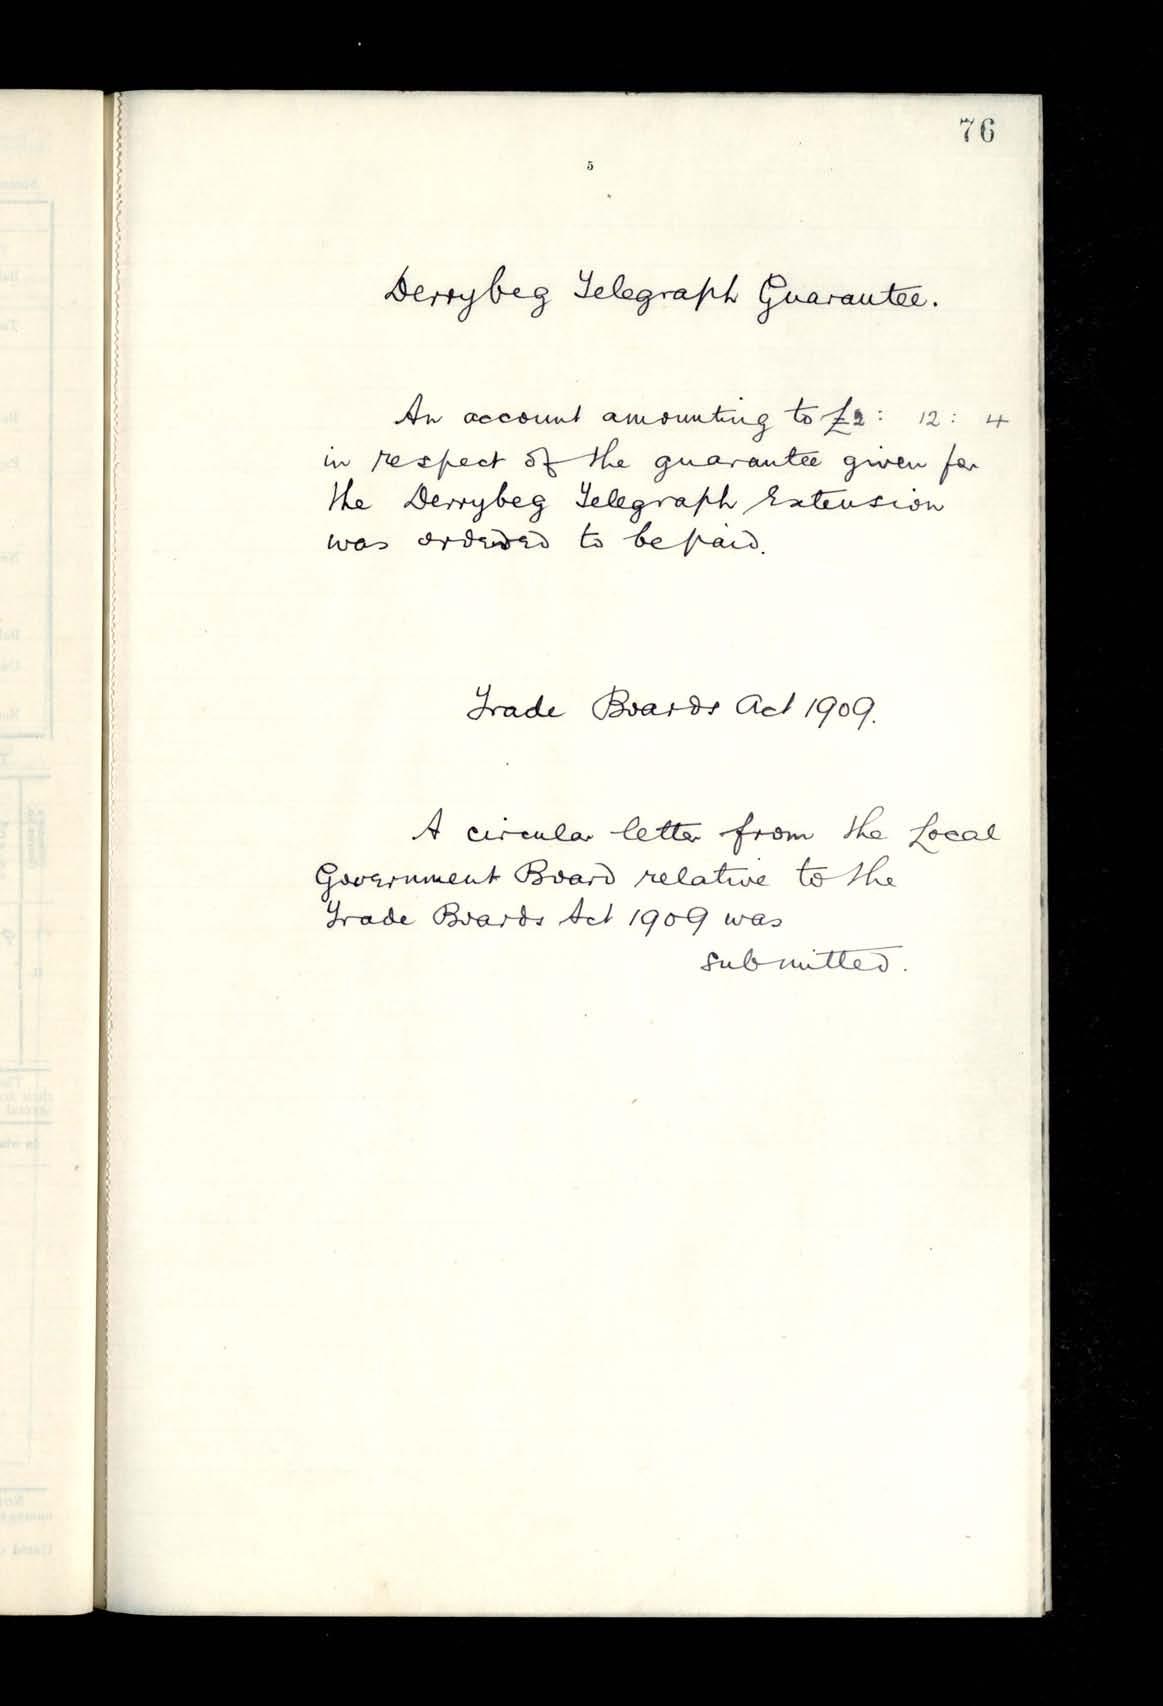 76
5
Derrybeg Telegraph Guarantee.
An account amounting to £2: 12: 4
in respect of the guarantee given for
the Derrybeg Telegraph Extension
was ordered to be paid.
Trade Boards Act 1909.
A circular letter from the Local
Government Board relative to the
Trade Boards Act 1909 was
submitted.